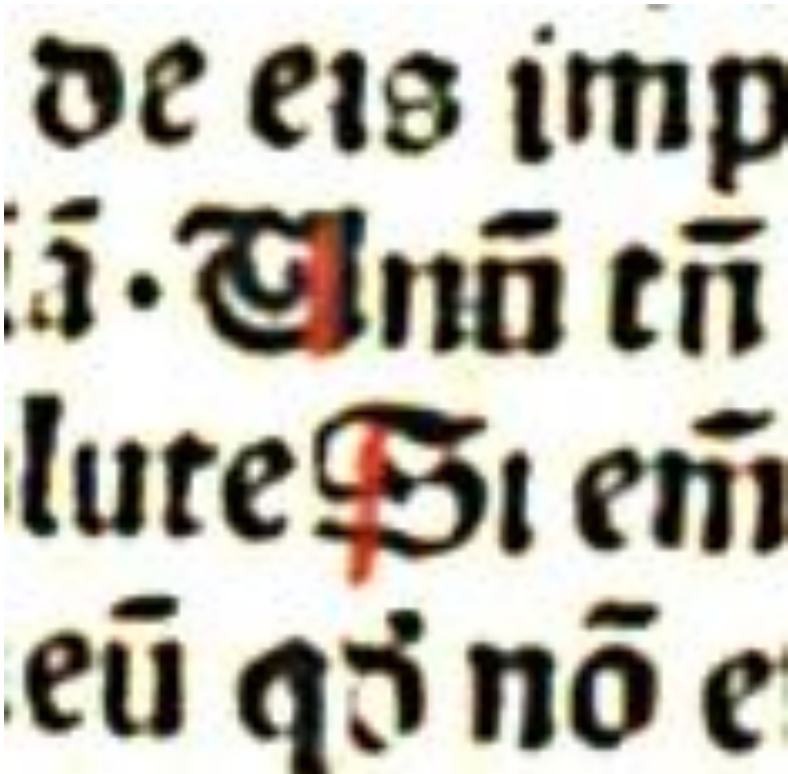 de eis imp
ā · Unū tñ
lute Si em̄
eū qđ nō e